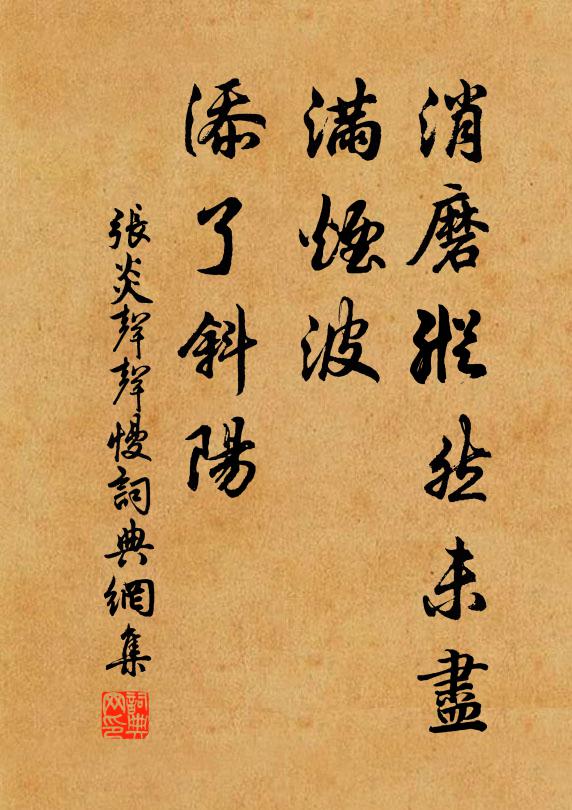 消磨縱然未盡
滿煙波
添了斜陽
張炎聲聲慢詞典網集
詞典網印